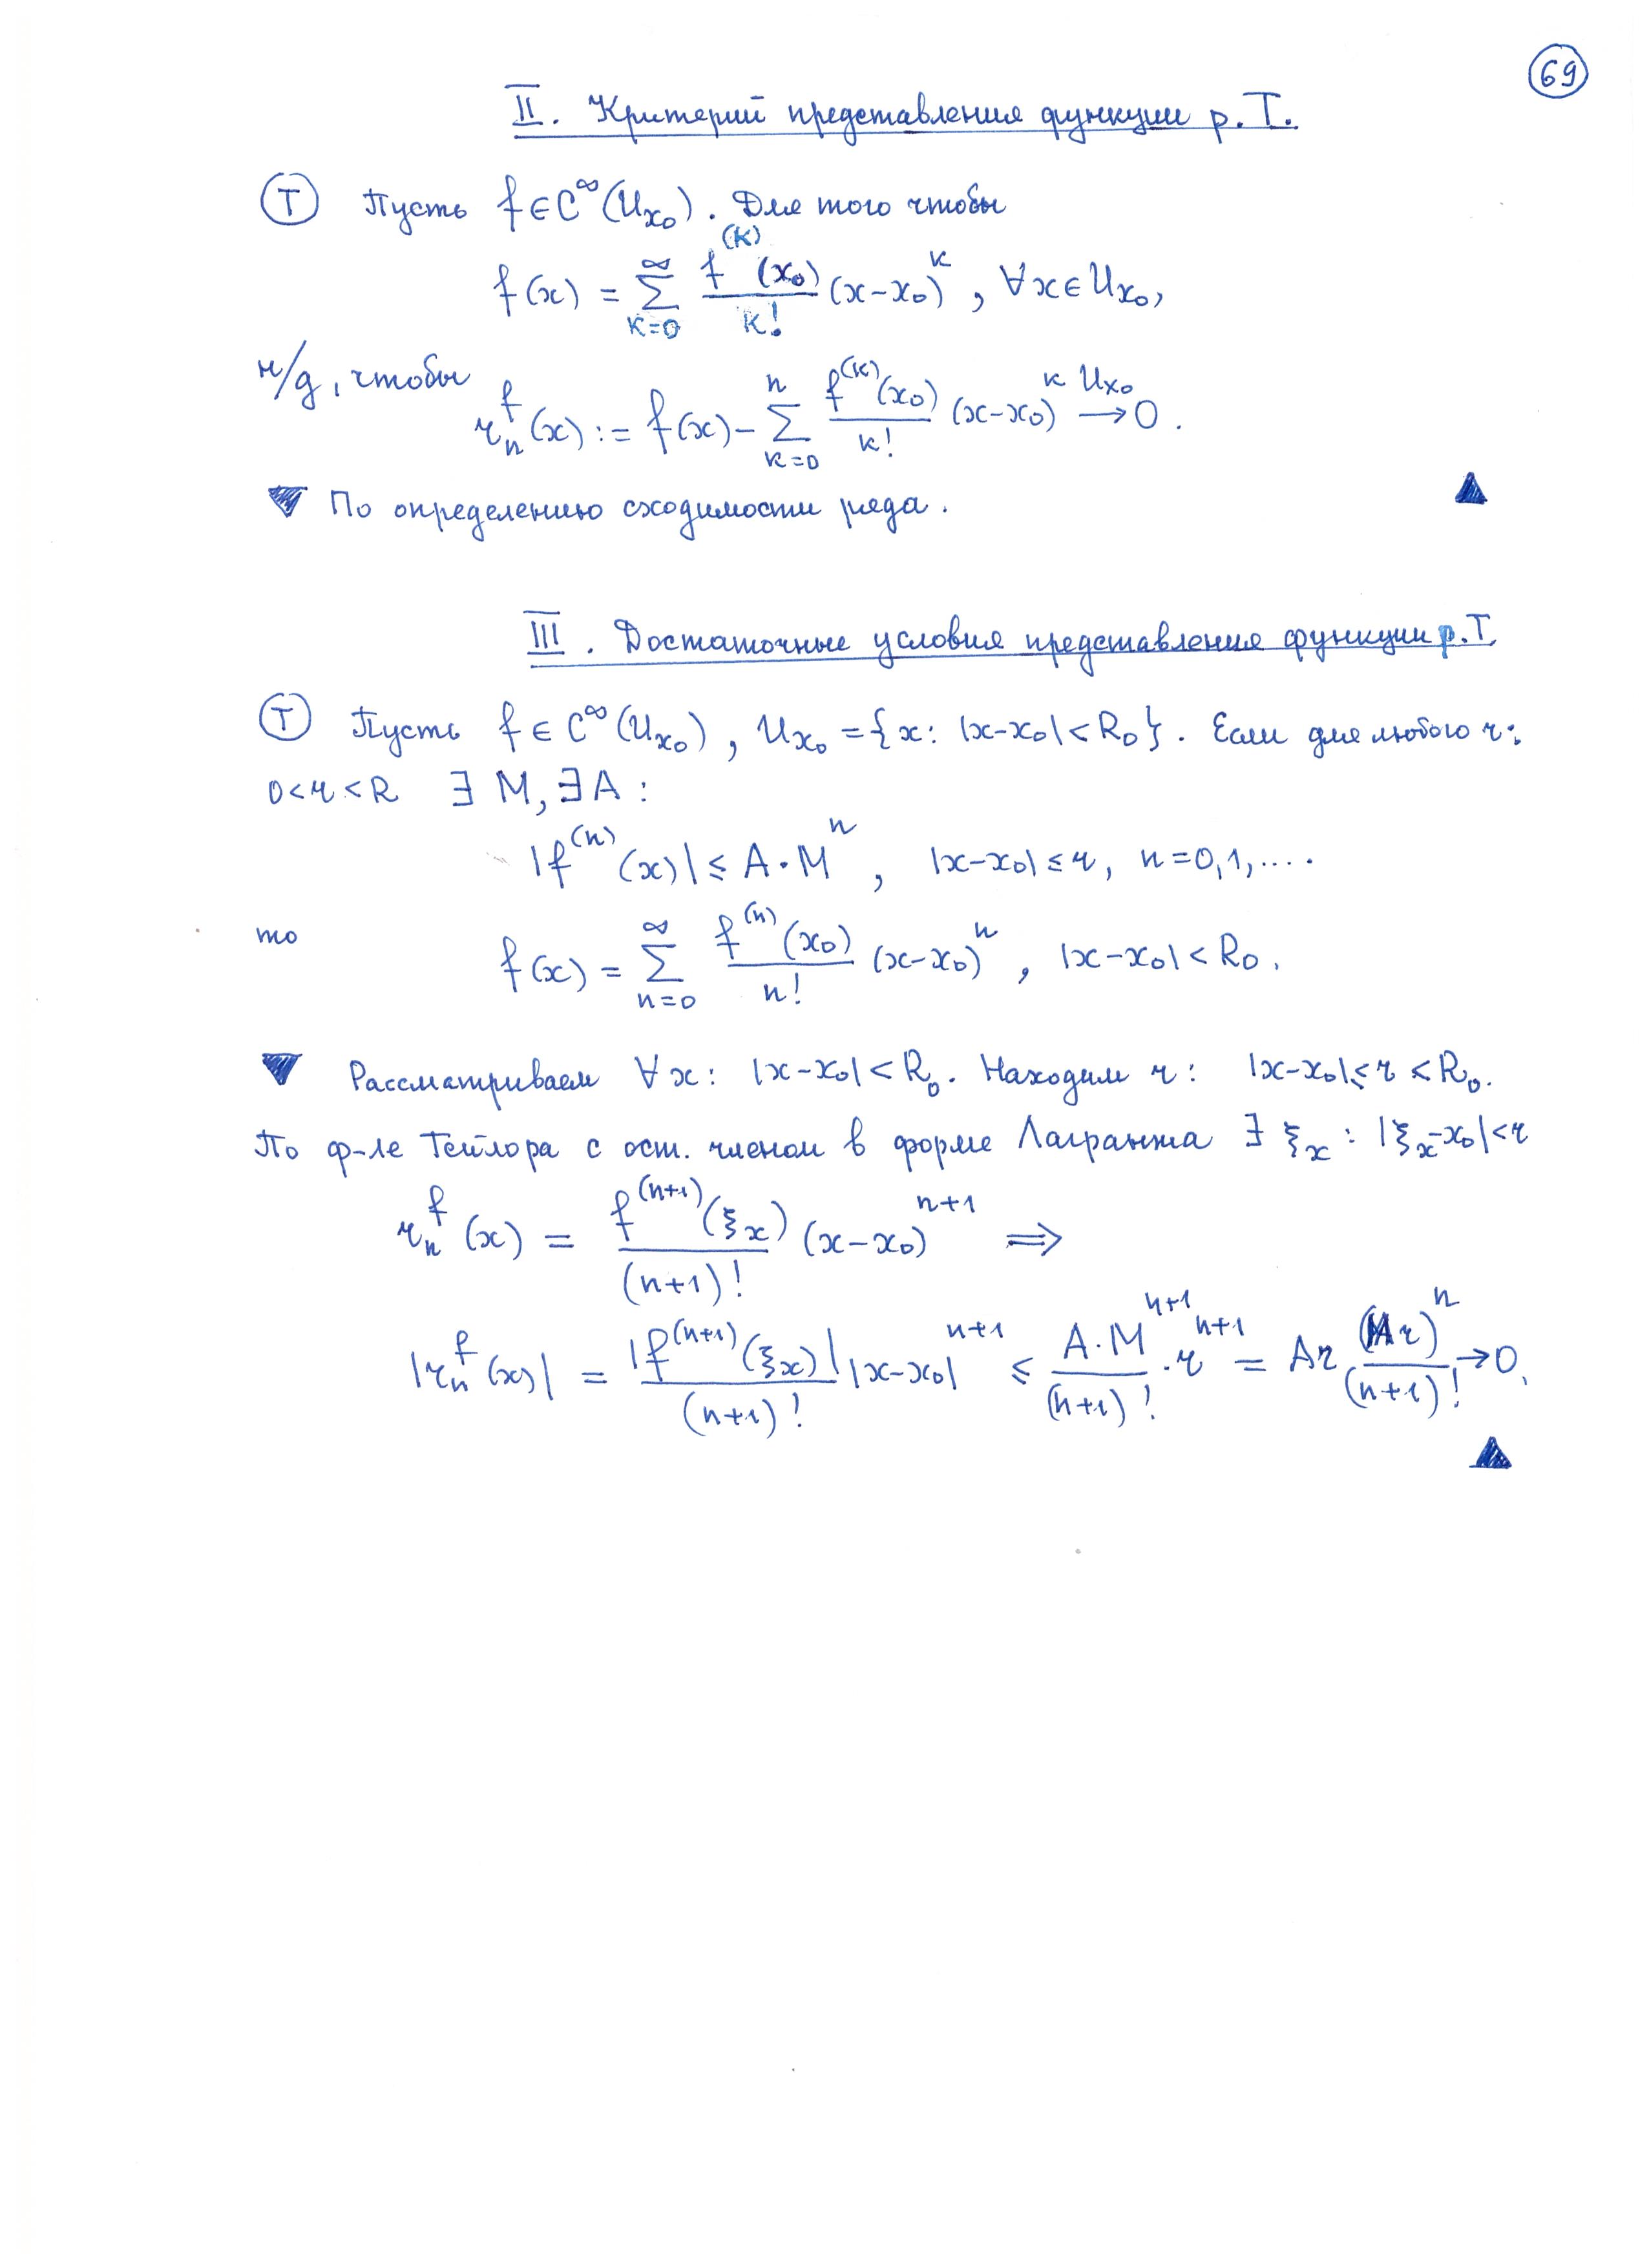 69
II. Критерий представления функции р. Т.
Ⓣ Пусть f ∈ C^∞(U_{x₀}). Для того чтобы
f(x) = ∑_{k=0}^{∞} \frac{f^{(k)}(x₀)}{k!} (x-x₀)^k, ∀x ∈ U_{x₀},
н/д, чтобы
r_n^f(x) := f(x) - ∑_{k=0}^{n} \frac{f^{(k)}(x₀)}{k!} (x-x₀)^k \xrightarrow{U_{x₀}} 0.
▼ По определению сходимости ряда. ▲
III. Достаточные условия представления функции р. Т.
Ⓣ Пусть f ∈ C^∞(U_{x₀}), U_{x₀} = {x: |x-x₀| < R₀}. Если для любого r:
0 < r < R ∃ M, ∃ A:
|f^{(n)}(x)| ≤ A·M^n, |x-x₀| ≤ r, n=0,1,....
то
f(x) = ∑_{n=0}^{∞} \frac{f^{(n)}(x₀)}{n!} (x-x₀)^n, |x-x₀| < R₀.
▼ Рассматриваем ∀x: |x-x₀| < R₀. Находим r: |x-x₀| ≤ r < R₀.
По ф-ле Тейлора с ост. членом в форме Лагранжа ∃ ξ_x: |ξ_x-x₀| < r
r_n^f(x) = \frac{f^{(n+1)}(ξ_x)}{(n+1)!} (x-x₀)^{n+1} ⟹
|r_n^f(x)| = \frac{|f^{(n+1)}(ξ_x)|}{(n+1)!} |x-x₀|^{n+1} ≤ \frac{A·M^{n+1}}{(n+1)!}·r^{n+1} = Ar \frac{(Mr)^n}{(n+1)!} → 0,
▲